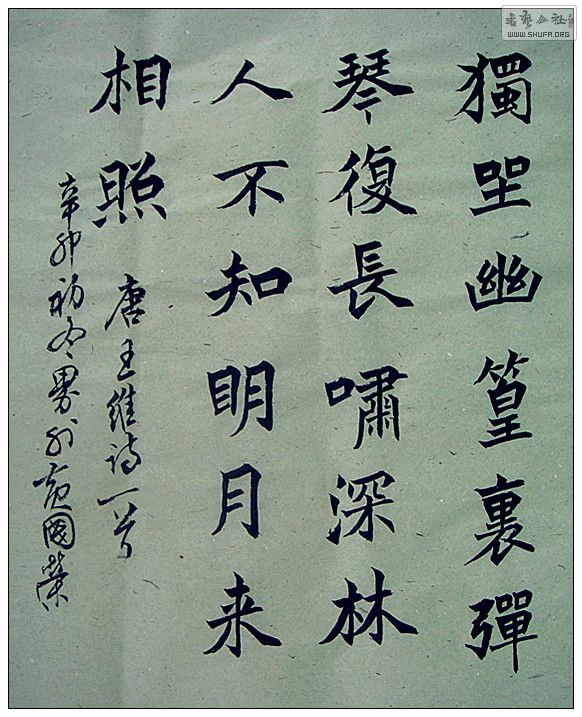 獨坐幽篁裏彈
琴復長嘯深林
人不知明月来
相照 唐王維詩一首
辛卯初冬 國榮
书艺公社
WWW.SHUFA.ORG